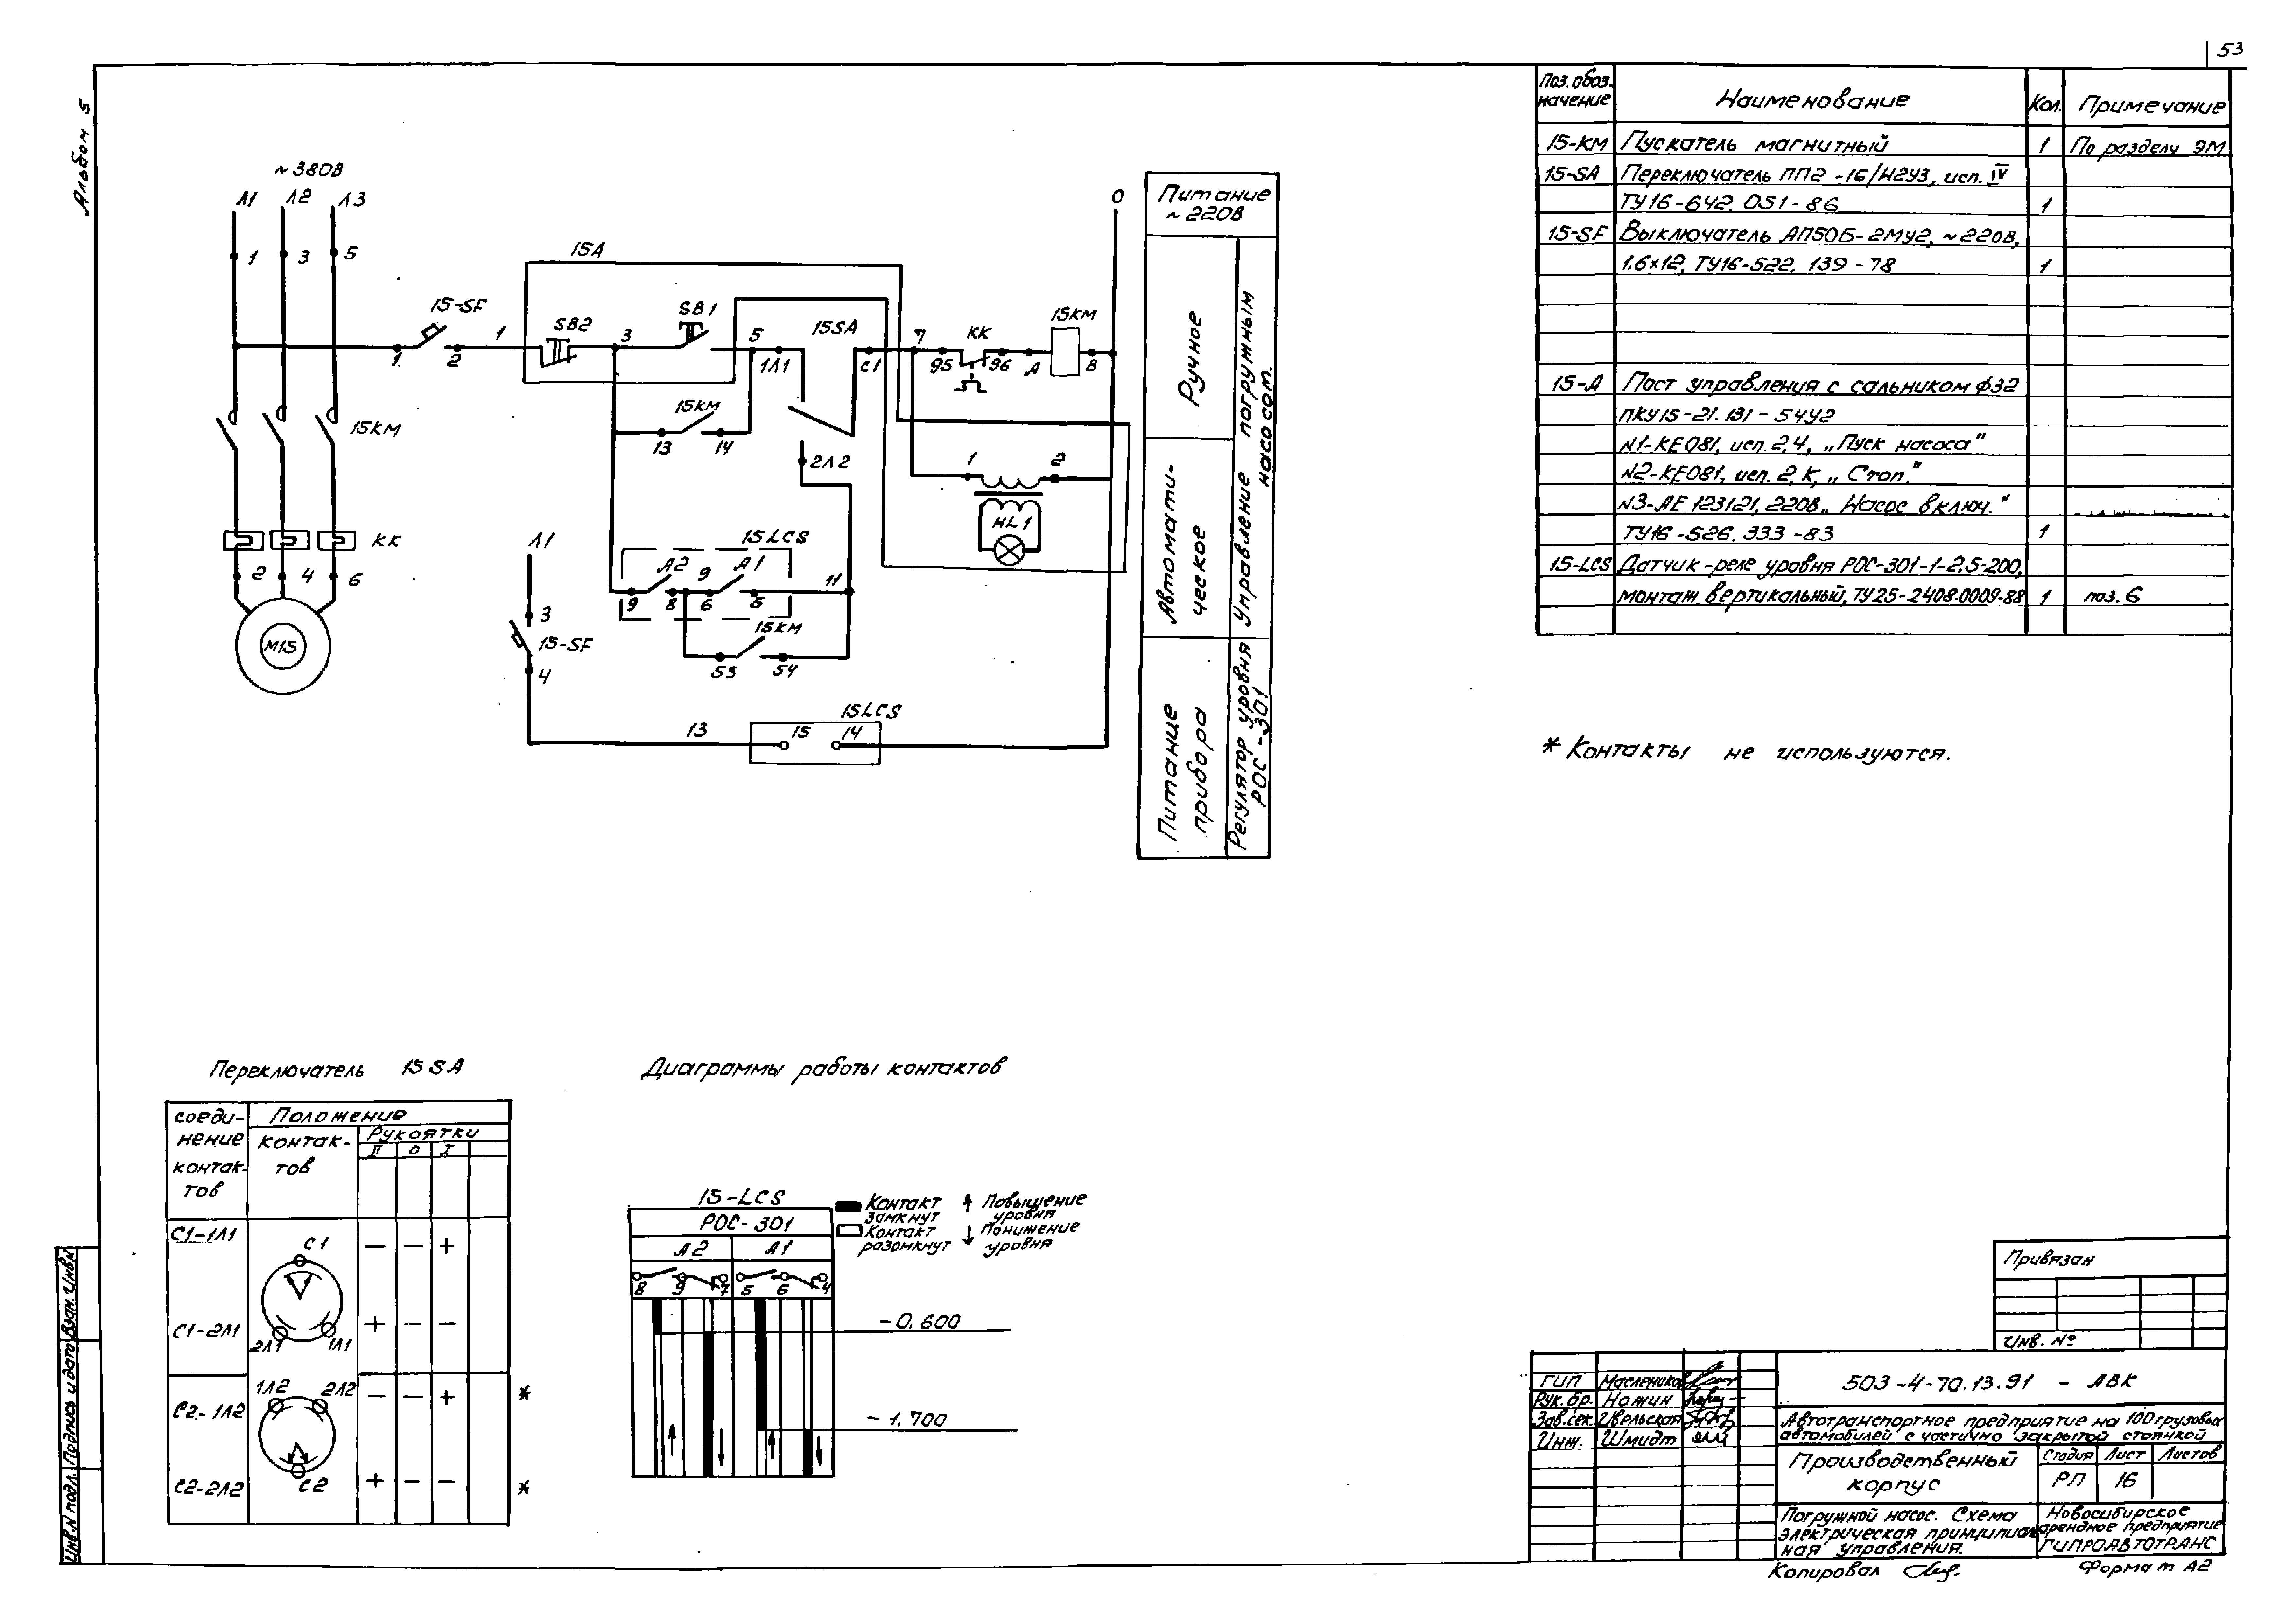 53
Альбом 5
~380В
Л1 Л2 Л3
1 3 5
15КМ
КК
2 4 6
М15
15-SF
1 2
1
15А
SB2
3
SB1
5
1Л1
15SA
С1
7
95
КК
96
А
15КМ
В
0
15КМ
13 14
2Л2
1 2
HL1
15LCS
А2 9 А1
9 8 6 5
11
15КМ
53 54
Л1
3
15-SF
4
13
15LCS
15 14
Питание
~220В
Ручное
Автомати-
ческое
Управление погружным
насосом.
Питание
прибора
Регулятор уровня
РОС-301
Поз. обоз-
начение
Наименование
Кол.
Примечание
15-КМ Пускатель магнитный 1 По разделу ЭМ
15-SA Переключатель ПП2-16/Н2У3, исп. IV
ТУ16-642.051-86 1
15-SF Выключатель АП50Б-2МУ2, ~220В,
1.6×12, ТУ16-522.139-78 1
15-А Пост управления с сальником ф32
ПКУ15-21.131-54У2
N1-КЕ081, исп. 2,4, „Пуск насоса"
N2-КЕ081, исп. 2, К, „Стоп."
N3-АЕ 123121, 220В „Насос включ."
ТУ16-526.333-83 1
15-LCS Датчик-реле уровня РОС-301-1-2,5-200,
монтаж вертикальный, ТУ25-2408.0009-88 1 поз. 6
* Контакты не используются.
Переключатель 15SA
соеди-
нение
контак-
тов
Положение
контак-
тов
Рукоятки
II 0 I
С1-1Л1 — — +
С1
2Л1 1Л1
С1-2Л1 + — —
1Л2 2Л2
С2-1Л2 — — + *
С2
С2-2Л2 + — — *
Диаграммы работы контактов
15-LCS
РОС-301
А2 А1
8 9 7 5 6 4
Контакт
замкнут
Контакт
разомкнут
↑ Повышение
уровня
↓ Понижение
уровня
-0,600
-1,700
Привязан
Инв. №
Взам. Инв.N
Подпись и дата
Инв.N подл.
ГИП Маслеников
Рук.бр. Ножин
Зав.сек. Цвельская
Инж. Шмидт
503-4-70.13.91 - АВК
Автотранспортное предприятие на 100 грузовых
автомобилей с частично закрытой стоянкой
Производственный
корпус
Стадия Лист Листов
РП 16
Погружной насос. Схема
электрическая принципиаль-
ная управления.
Новосибирское
арендное предприятие
ГИПРОАВТОТРАНС
Копировал
Формат А2